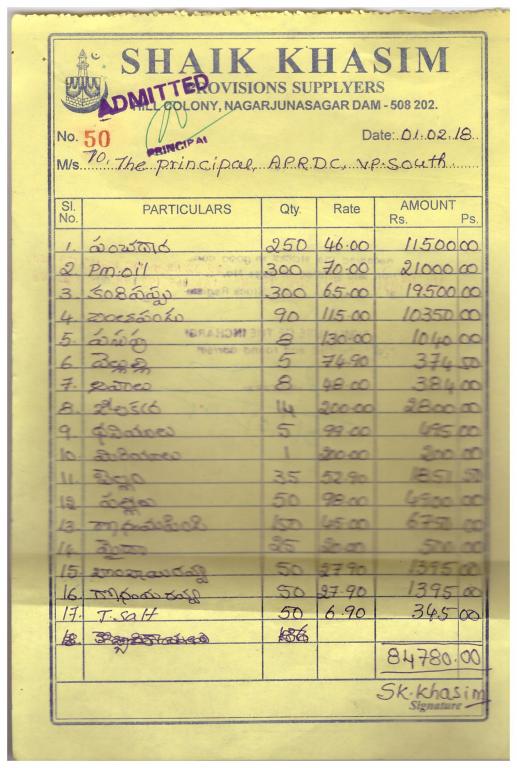 SHAIK KHASIM
PROVISIONS SUPPLYERS
HILL COLONY, NAGARJUNASAGAR DAM - 508 202.
ADMITTED
PRINCIPAL
No. 50 Date: 01.02.18
M/s. To, The principal, A.P.R.D.C, V.P. South
Sl. No. PARTICULARS Qty. Rate AMOUNT Rs. Ps.
1. పంచదార 250 46.00 11500 00
2 Pm.oil 300 70.00 21000 00
3. కందిపప్పు 300 65.00 19500 00
4. చింతపండు 90 115.00 10350 00
5. పసుపు 8 130.00 1040 00
6. వెల్లుల్లి 5 74.90 374 50
7. ఆవాలు 8 48.00 384 00
8. జీలకర్ర 14 200.00 2800 00
9. ధనియాలు 5 99.00 495 00
10. మిరియాలు 1 200.00 200 00
11. బెల్లం 35 52.90 1851 50
12 పల్లీలు 50 98.00 4900 00
13. గోధుమపిండి 150 45.00 6750 00
14. మైదా 25 20.00 500 00
15. బొంబాయిరవ్వ 50 27.90 1395 00
16. గోధుమరవ్వ 50 27.90 1395 00
17. T. salt 50 6.90 345 00
18.
84780.00
SK. Khasim
Signature